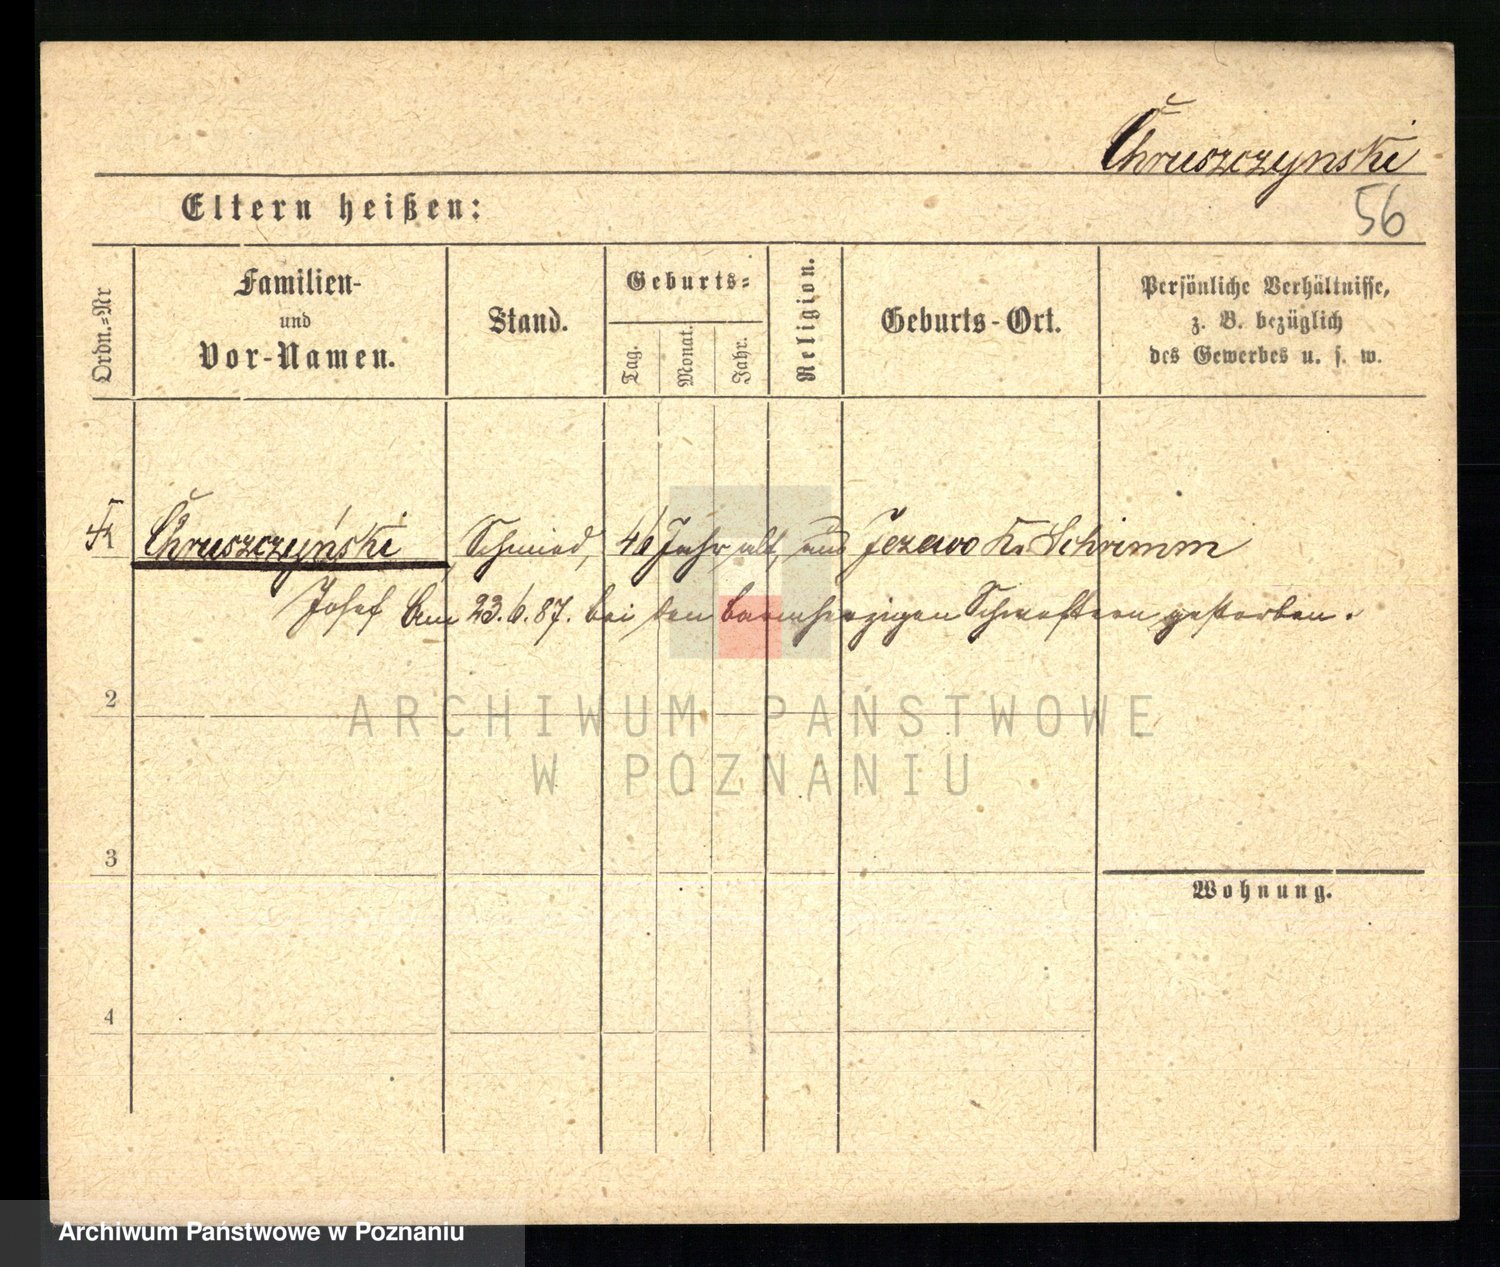 Chruszczynski
Eltern heißen:
56
Ordn.-Nr
Familien-
und
Vor-Namen.
Stand.
Geburts-
Tag.
Monat.
Jahr.
Religion.
Geburts-Ort.
Persönliche Verhältnisse,
z. B. bezüglich
des Gewerbes u. s. w.
Chruszczyński Schmied, 46 Jahr alt, aus Jezewo Kr. Schrimm
Josef Am 23.6.87. bei den barmherzigen Schwestern gestorben.
2
ARCHIWUM PAŃSTWOWE
W POZNANIU
3
Wohnung.
4
Archiwum Państwowe w Poznaniu